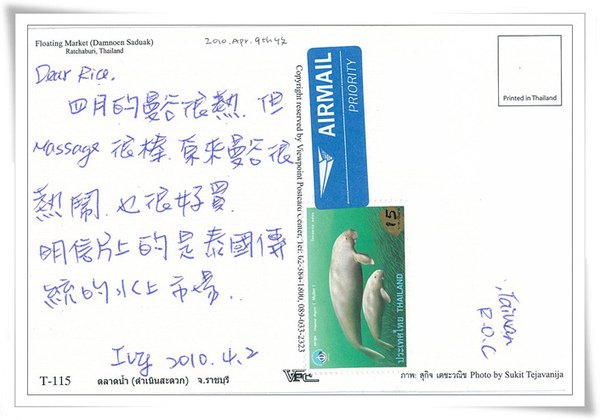 Floating Market (Damnoen Saduak)
Ratchaburi, Thailand
2010. Apr. 9th收
Dear Rice,
四月的曼谷很熱, 但
massage 很棒. 原來曼谷很
熱鬧. 也很好買.
明信片上的是泰國傳
統的水上市場..
Ivy 2010.4.2
T-115
ตลาดน้ำ (ดำเนินสะดวก) จ.ราชบุรี
Copyright reserved by Viewpoint Postcard Center, Tel: 02-384-1800, 089-033-2323
AIRMAIL
PRIORITY
15
ประเทศไทย THAILAND
VPC
Printed in Thailand
Taiwan
R.O.C
ภาพ: สุกิจ เตชะวณิช Photo by Sukit Tejavanija